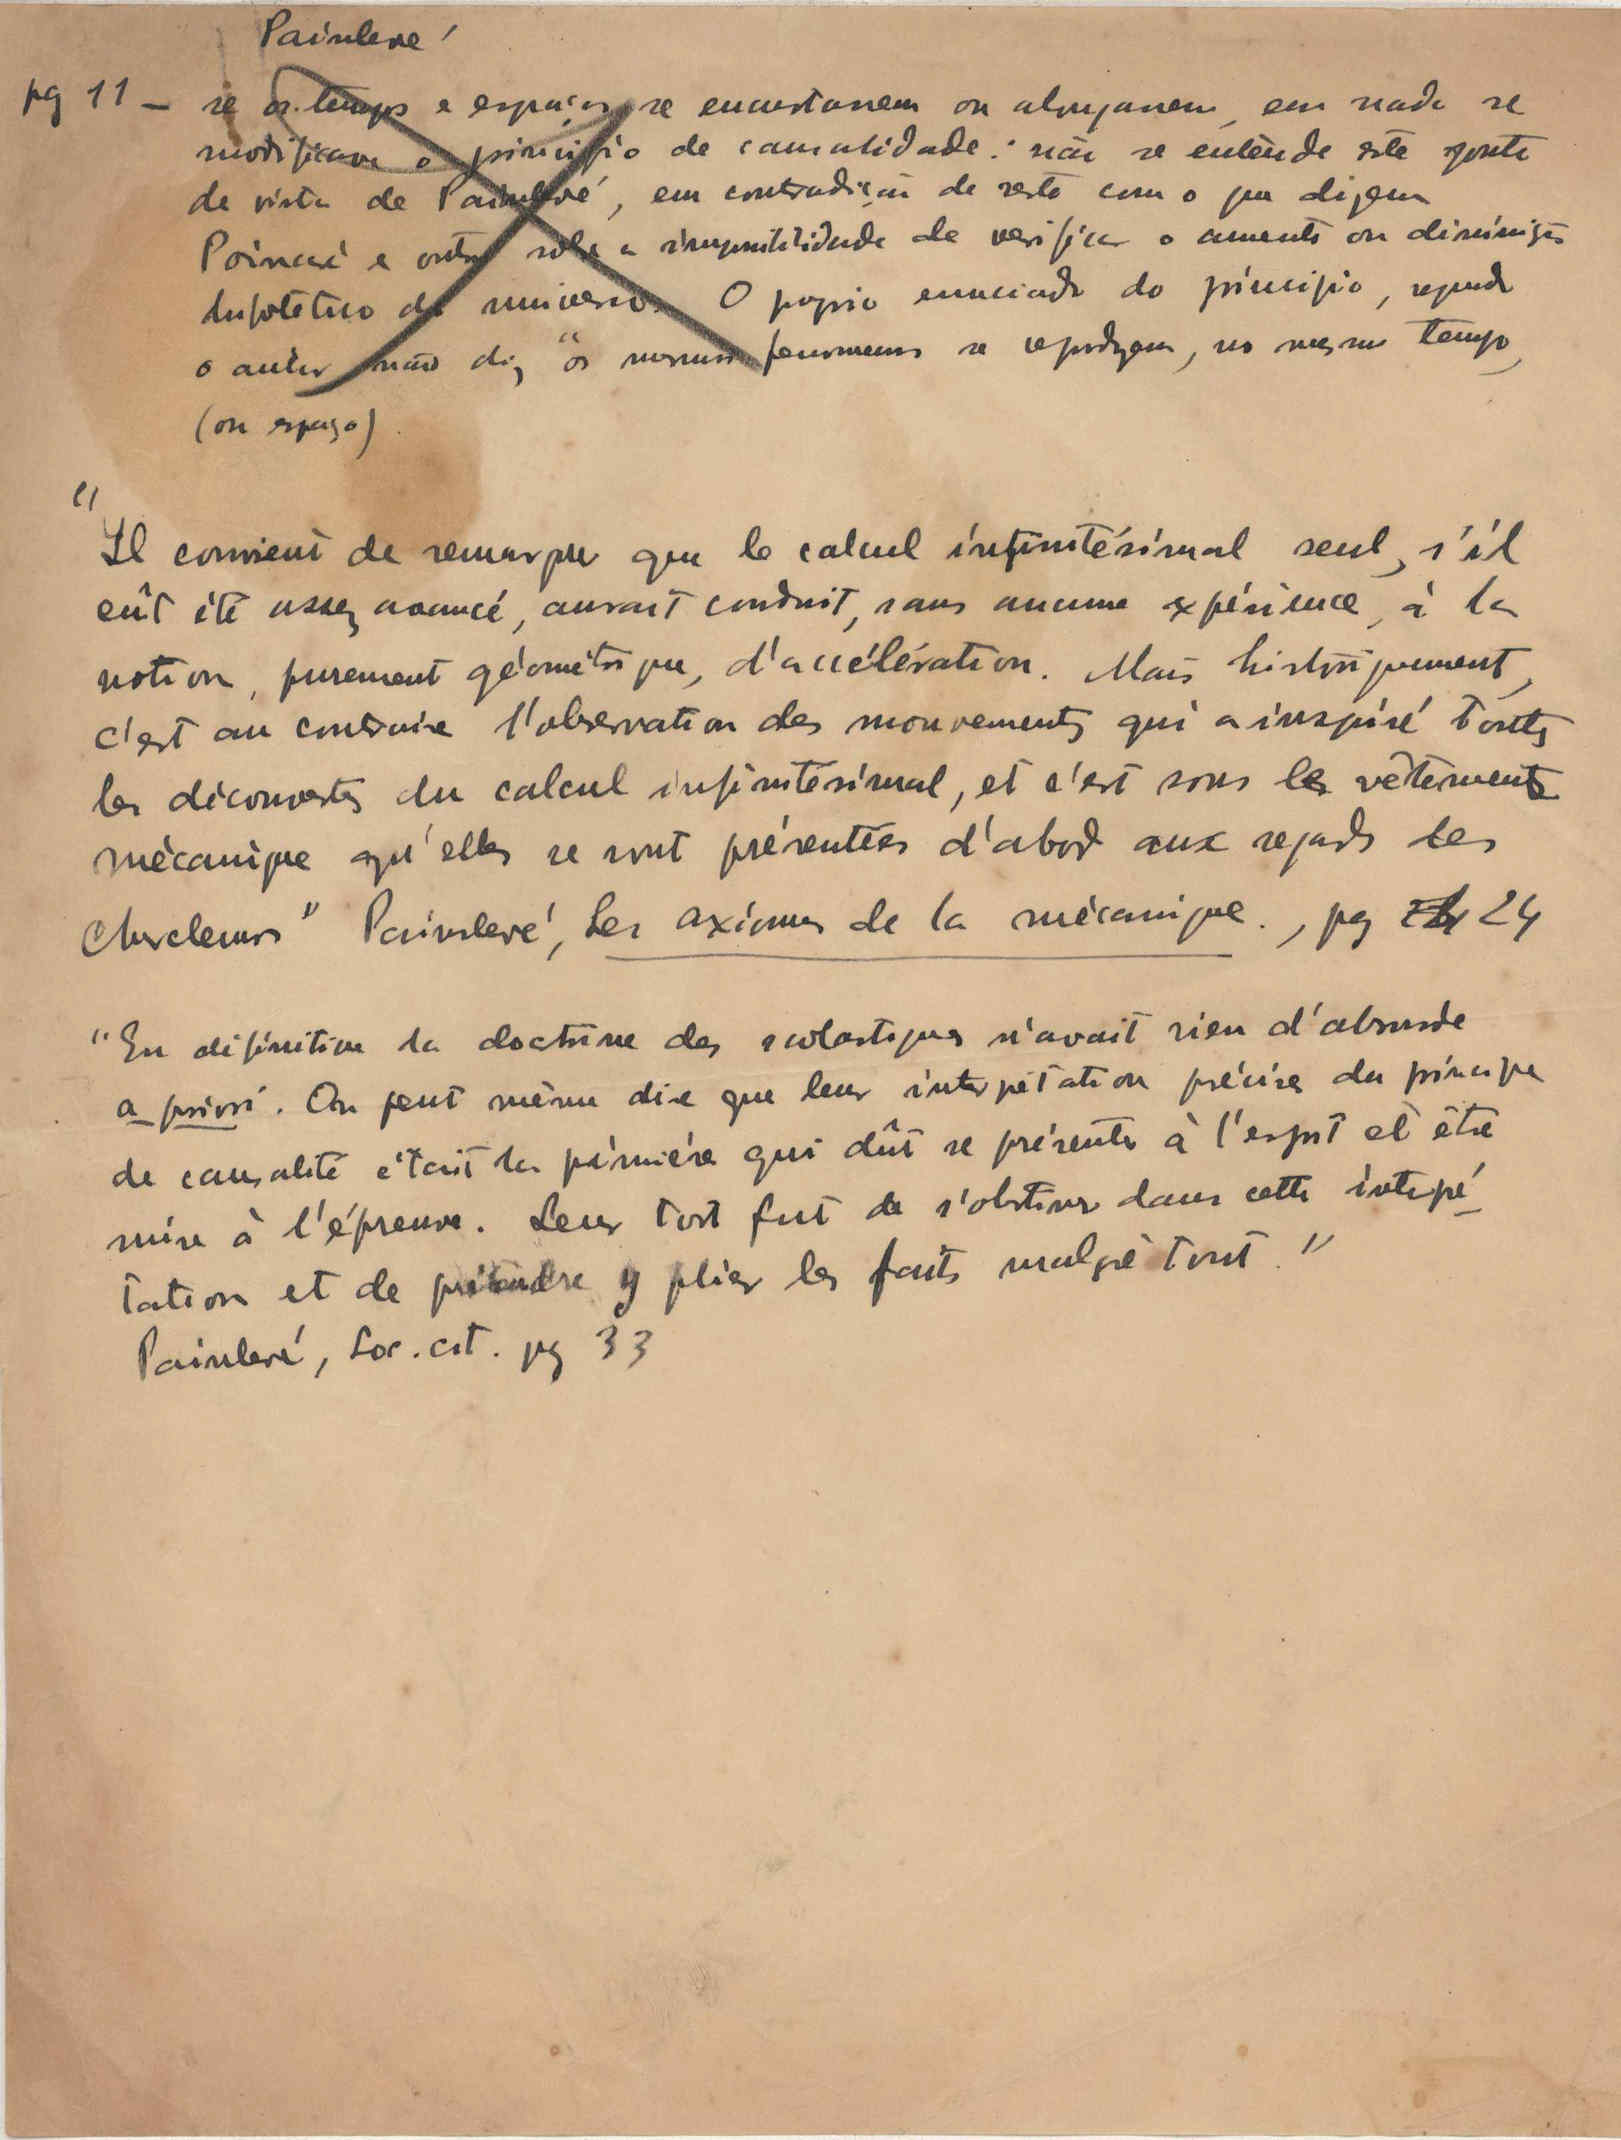 Painlevé
pg 11 — se os tempos e espaços se encurtassem ou alongassem, em nada se
modificava o principio de causalidade: não se entende este ponto
de vista de Painlevé, em contradição de resto com o que dizem
Poincaré e outros sobre a impossibilidade de verificar o aumento ou diminuição
hipotetico do universo. O proprio enunciado do principio, segundo
o autor não diz "os mesmos fenomenos se reproduzem, no mesmo tempo,
(ou espaço)
"Il convient de remarquer que le calcul infinitésimal seul, s'il
eût été assez avancé, aurait conduit, sans aucune expérience, à la
notion, purement géométrique, d'accélération. Mais historiquement,
c'est au contraire l'observation des mouvements qui a inspiré toutes
les découvertes du calcul infinitésimal, et c'est sous les vêtements
mécanique qu'elles se sont présentées d'abord aux regards des
chercheurs" Painlevé, Les axiomes de la mécanique., pg 24
"En définitive la doctrine des scolastiques n'avait rien d'absurde
a priori. On peut même dire que leur interprétation précise du principe
de causalité était la première qui dût se présenter à l'esprit et être
mise à l'épreuve. Leur tort fut de s'obstiner dans cette interpré
tation et de prétendre y plier les faits malgré tout."
Painlevé, Loc. cit. pg 33